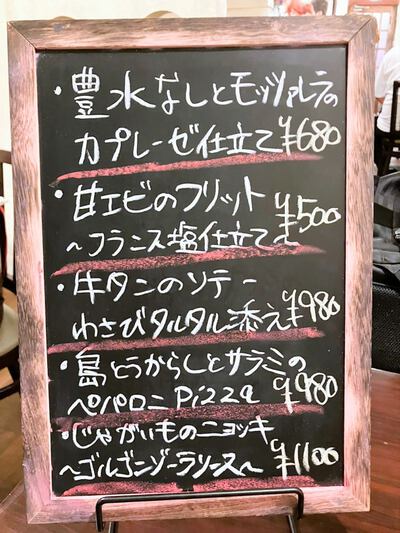 ・豊水なしとモッツァレラの
カプレーゼ仕立て ¥680
・甘エビのフリット ¥500
～フランス塩仕立て～
・牛タンのソテー ¥980
わさびタルタル添え
・島とうがらしとサラミの
ペパロニ Pizza ¥980
・じゃがいものニョッキ
～ゴルゴンゾーラソース～ ¥1100